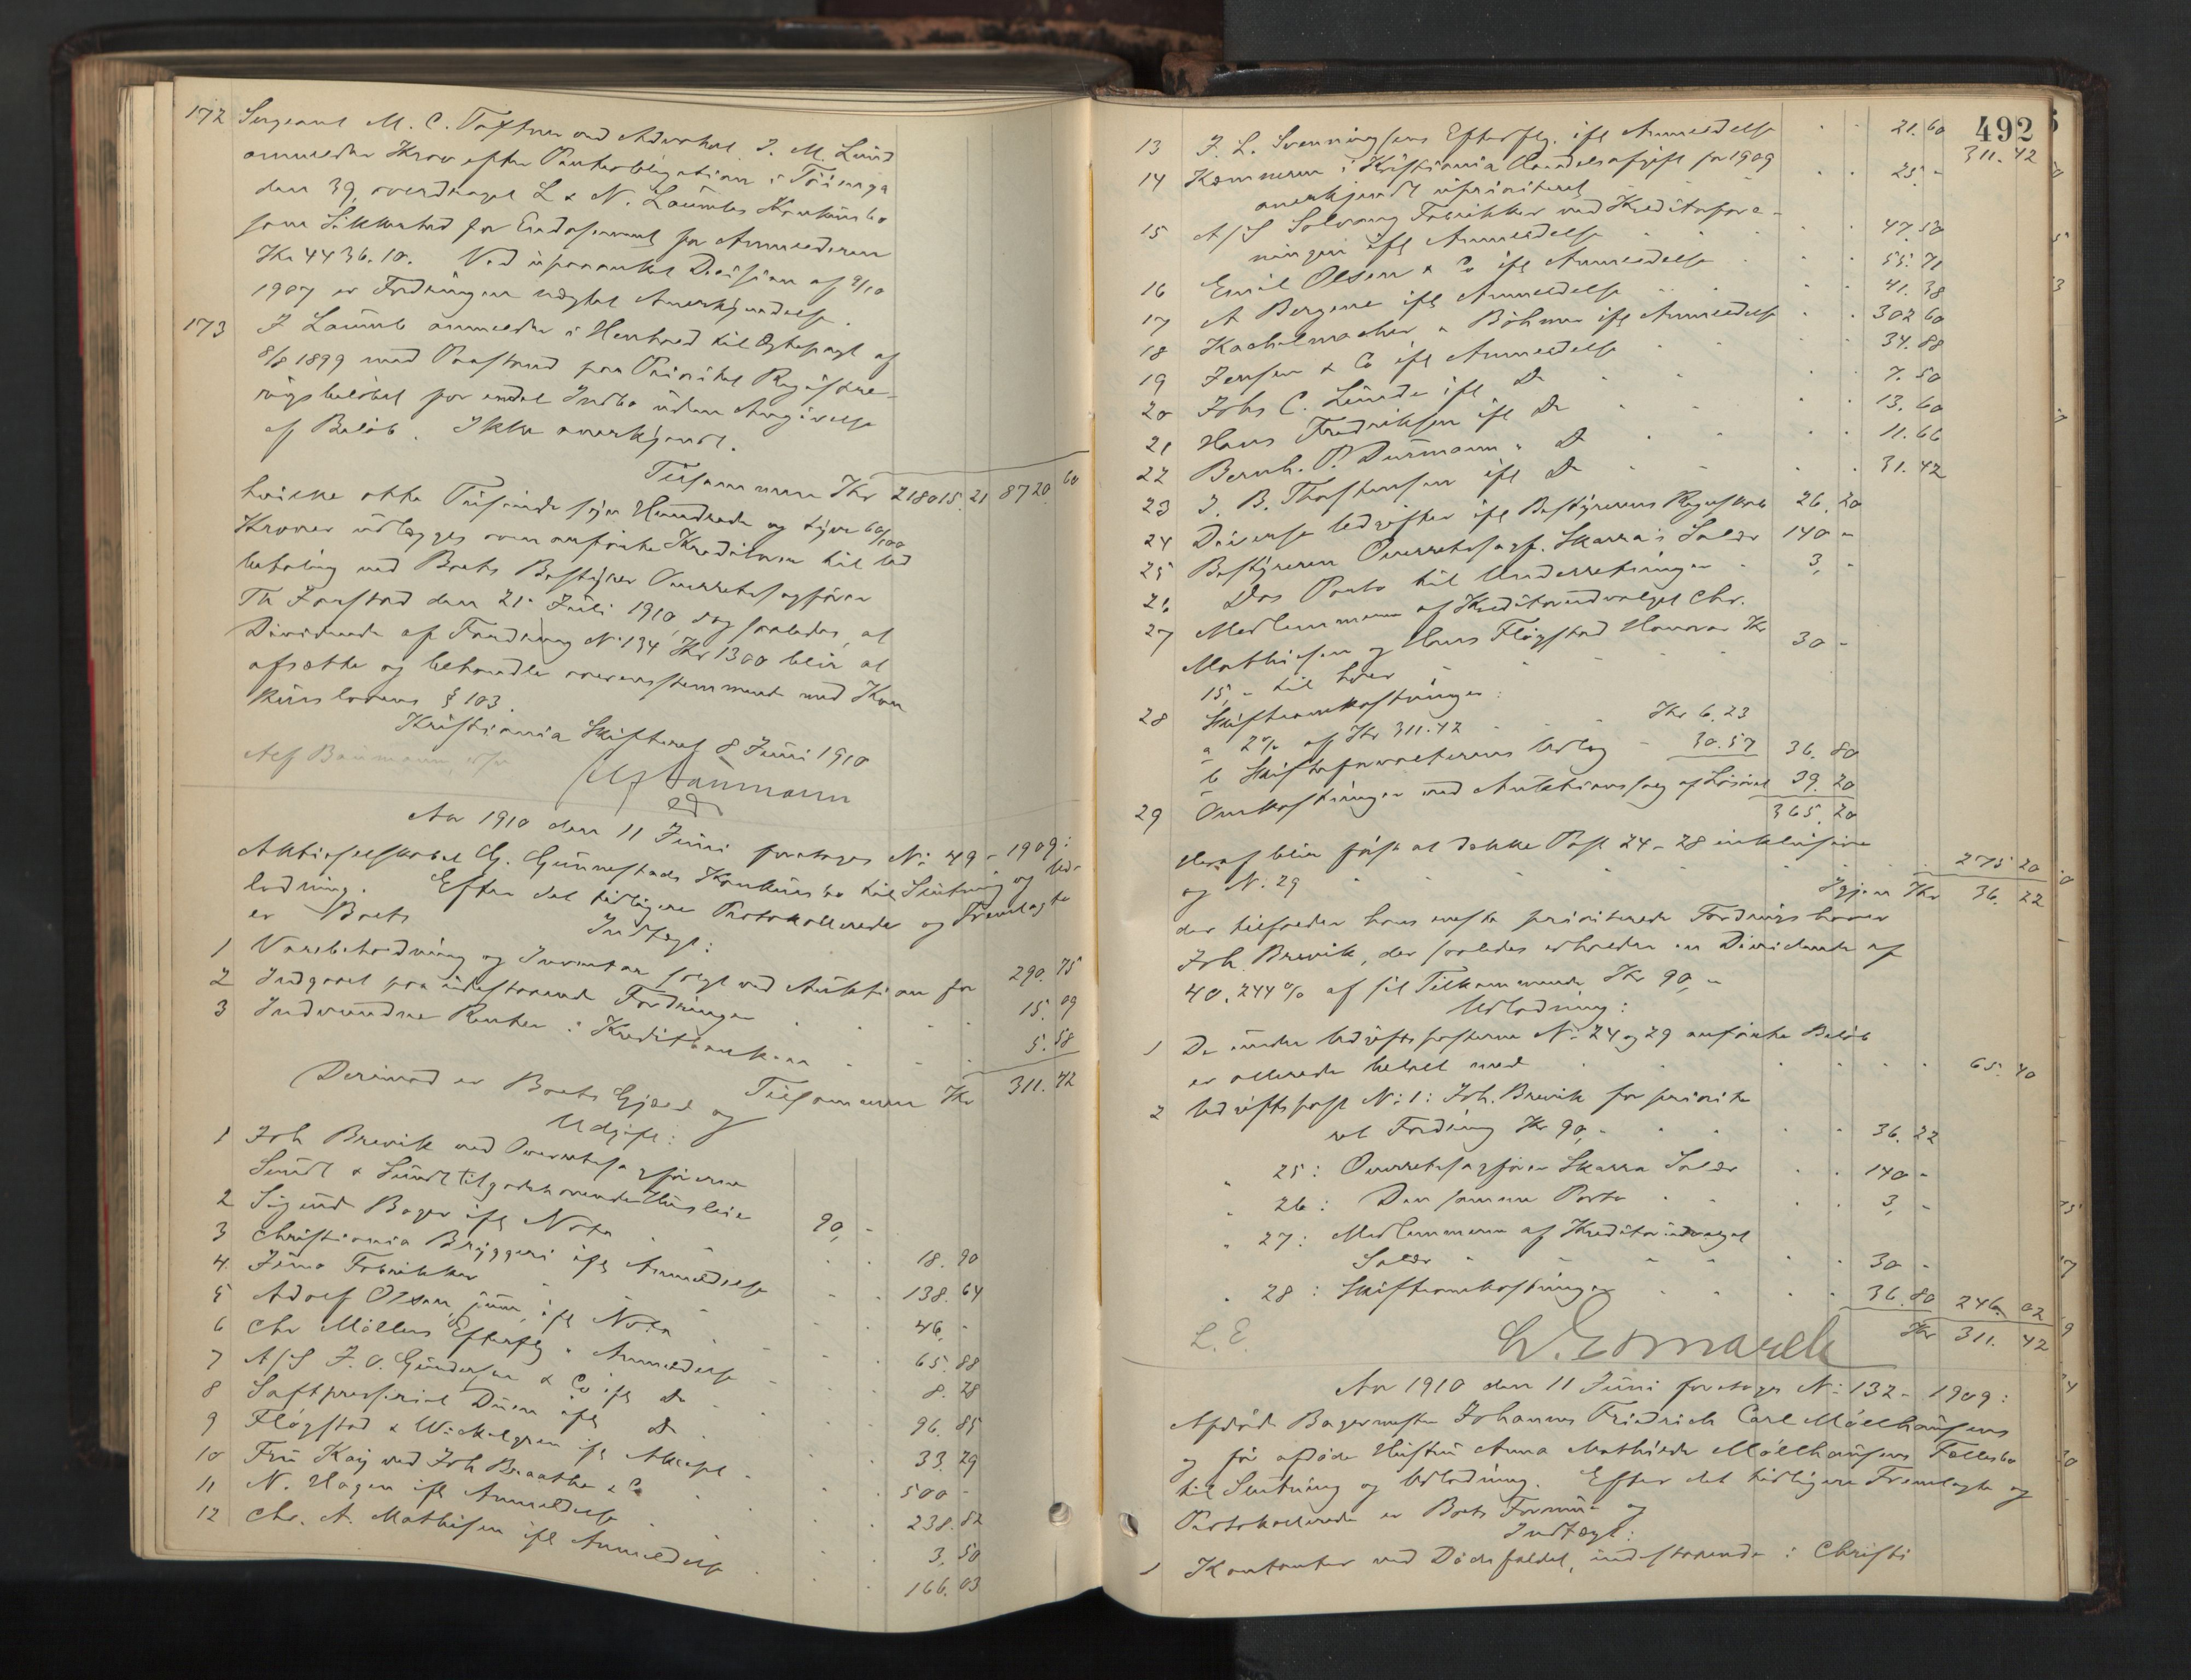 172 Sergeant M. C. Toftner ved Advokat J. M. Lund
anmelder Krav efter Panteobligation i Töiengaden
39, overdraget L & N. Laumbs Konkursbo
som Sikkerhed for Endossement for Anmelderen
Kr 4436.10. Ved upaaanket Decision af 9/10
1907 er Fordringen nægtet Anerkjendelse.
173 J Laumb anmelder i Henhold til Ægtepagt af
8/8 1899 med Paastand paa Prioritet Registreringsbeløbet
for endel Indbo uden Angivelse
af Beløb. Ikke anerkjendt.
Tilsammen Kr 218015.21 8720.60
hvilke otte Tusinde syv Hundrede og tyve 60/100
Kroner udlægges ovenanførte Kreditorer til Udbetaling
ved Boets Bestyrer Overretssagfører
Th Jarstad den 21. Juli 1910, dog saaledes, at
Dividende af Fordring No 134 Kr 1300 blir at
afsætte og behandle overensstemmende med Konkurslovens
§ 103.
Kristiania Skifteret 8 Juni 1910
Alf Baumann
Alf Baumann
ed
Aar 1910 den 11 Juni foretoges No 49 - 1909:
Aktieselskabet G. Gunnestads Konkursbo til Slutning og Udlodning.
Efter det tidligere Protokollerede og Fremlagte
er Boets
Indtægt:
1 Varebeholdning og Inventar solgt ved Auktion for 290.75
2 Indgaaet paa udestaaende Fordringer 15.09
3 Indvundne Renter i Kreditbanken 5.58
Tilsammen Kr 311.42
Derimod er Boets Gjæld og
Udgift:
1 Joh Brevik ved Overretssagførerne
Sundt & Sundt tilgodehavende Husleie 90, -
2 Sigurd Bager ifl Nota 18.90
3 Christiania Bryggeri ifl Anmeldelse 138.64
4 Juno Fabrikker 46. -
5 Adolf Olsen jun, ifl Nota 65.88
6 Chr Møllers Efterflg " Anmeldelse 8.28
7 A/S J. O. Gundersen & Co ifl Do 96.85
8 Saftpresseriet Duen ifl Do 33.29
9 Fløgstad & Wickelgren ifl Aksept 500 -
10 Fru Kaij ved Joh Braathe & Co 238.82
11 N. Hagen ifl Anmeldelse 3.50
12 Chr. A. Mathisen ifl Anmeldelse 166.03
492
311.42
13 J. L. Svenningsens Efterflg. ifl Anmeldelse 21.60
14 Kæmneren i Kristiania Handelsafgift for 1909
anerkjendt uprioritert 25. -
15 A/S Solvang Fabrikker ved Kreditorforeningen
ifl Anmeldelse 47.50
16 Emil Olsen & Co ifl Anmeldelse 55.71
17 A Bergene ifl Anmeldelse 41.38
18 Kachelmacher & Böhmer ifl Anmeldelse 302.60
19 Jensen & Co ifl Anmeldelse 34.88
20 Johs C. Lunde ifl Do 7.50
21 Hans Fredriksen ifl Do 13.60
22 Bernh. P. Durmann " Do 11.66
23 J. B. Thostensen ifl Do 31.42
24 Diverse Udgifter ifl Bestyrerens Regnskab 26.20
25 Bestyreren Overretssagf. Skarra's Salær 140 -
26 Dos Porto til Underretninger 3, -
27 Medlemmerne af Kreditorudvalget Chr.
Mathisen og Hans Fløgstad Honorar Kr
15, - til hver 30 -
28 Skifteomkostninger:
a 2% af Kr 311.42 Kr 6.23
b Skifteforvalterens Udlæg 30.57 36.80
29 Omkostninger ved Auktionssalg af Løsøre 39.20
365.20
Heraf blir først at dække Post 24 - 28 inklusive
og No. 29 275 20
Igjen Kr 36.22
der tilfalder hans eneste prioriterede Fordringshaver
Joh. Brevik, der saaledes erholder en Dividende af
40.244% af sit Tilkommende Kr 90, -
Udlodning:
1 De under Udgiftsposterne No 24 og 29 anførte Beløb
er allerede betalt med 65.40
2 Udgiftspost No 1: Joh. Brevik for prioriteret
Fordring Kr 90, - 36.22
" 25: Overretssagfører Skarra Salær 140 -
" 26: Den samme Porto 3, -
" 27: Medlemmerne af Kreditorudvalget
Salær 30 -
" 28: Skifteomkostninger 36.80 246.02
Kr 311.42
L. E.
L. Esmarch
Aar 1910 den 11 Juni foretoges No 132 - 1909:
Afdøde Bagermester Johannes Friedrich Carl Möllhausens
og før afdøde Hustru Anna Mathilde Möllhausens Fællesbo
til Slutning og Udlodning. Efter det tidligere Fremlagte og
Protokollerede er Boets Formue og
Indtægt:
1 Kontanter ved Dødsfaldet, indestaaende i Christi